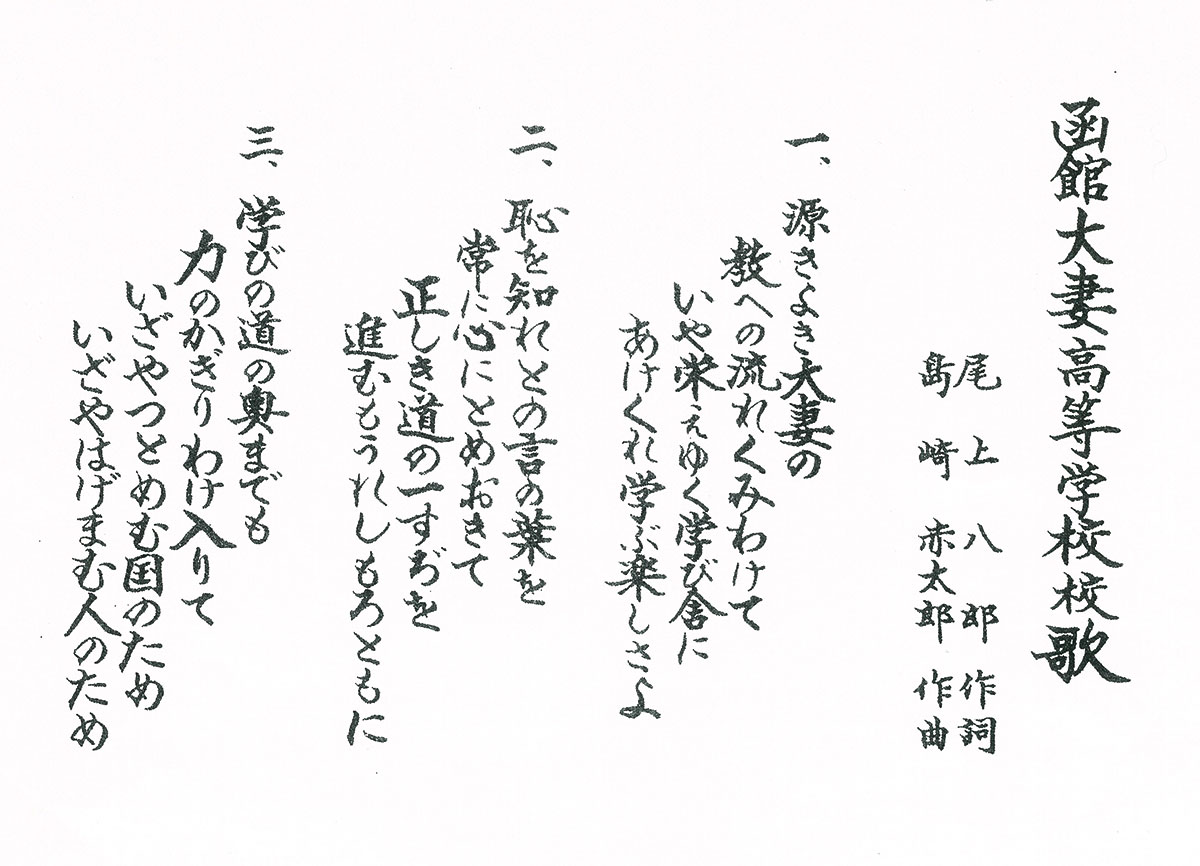 函館大妻高等学校校歌
尾上八郎 作詞
島崎赤太郎 作曲
一、源きよき大妻の
教への流れくみわけて
いや栄えゆく学び舎に
あけくれ学ぶ楽しさよ
二、恥を知れとの言の葉を
常に心にとめおきて
正しき道の一すぢを
進むもうれしもろともに
三、学びの道の奥までも
力のかぎりわけ入りて
いざやつとめむ国のため
いざやはげまむ人のため